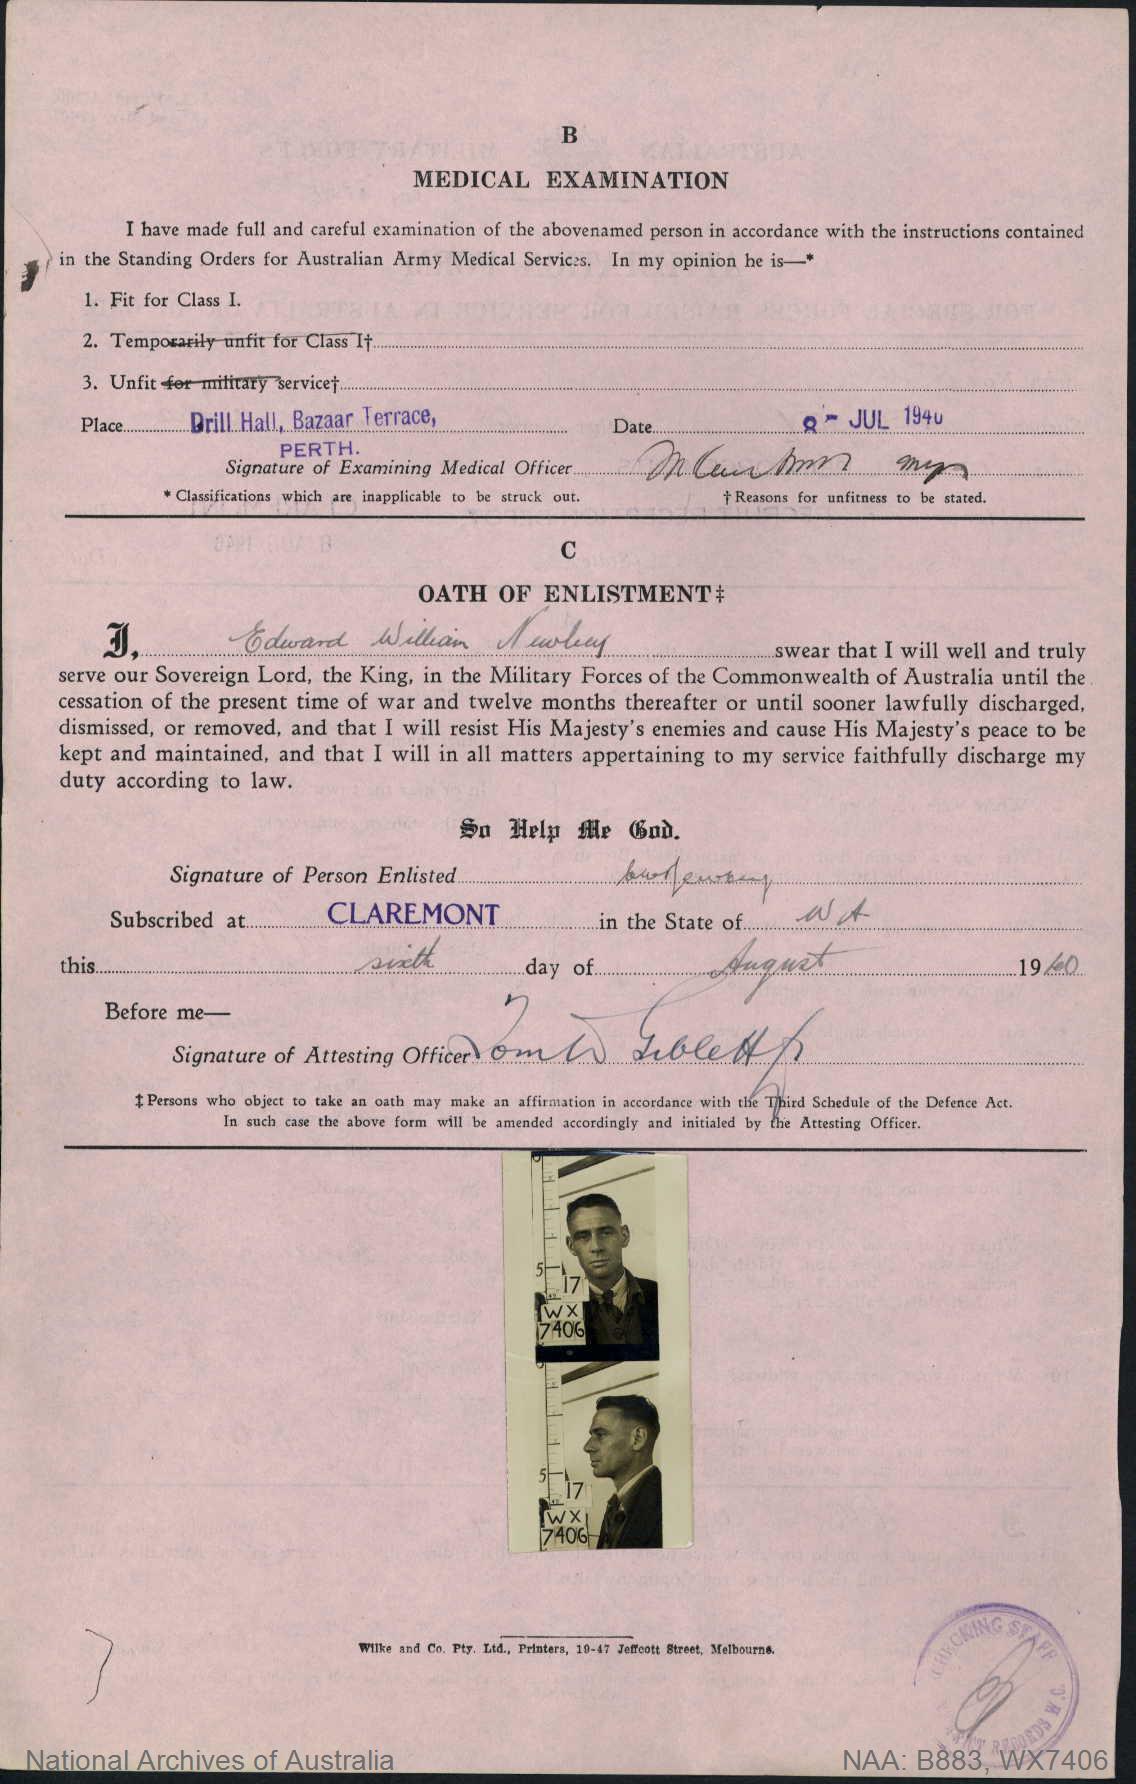 B
MEDICAL EXAMINATION
I have made full and careful examination of the abovenamed person in accordance with the instructions contained
in the Standing Orders for Australian Army Medical Services. In my opinion he is—*
1. Fit for Class I.
2. Temporarily unfit for Class I†
3. Unfit for military service†
Place Drill Hall, Bazaar Terrace, Date 8 - JUL 1940
PERTH.
Signature of Examining Medical Officer
* Classifications which are inapplicable to be struck out. † Reasons for unfitness to be stated.
C
OATH OF ENLISTMENT‡
I, Edward William Newbey swear that I will well and truly
serve our Sovereign Lord, the King, in the Military Forces of the Commonwealth of Australia until the
cessation of the present time of war and twelve months thereafter or until sooner lawfully discharged,
dismissed, or removed, and that I will resist His Majesty's enemies and cause His Majesty's peace to be
kept and maintained, and that I will in all matters appertaining to my service faithfully discharge my
duty according to law.
So Help Me God.
Signature of Person Enlisted
Subscribed at CLAREMONT in the State of W A
this sixth day of August 1940
Before me—
Signature of Attesting Officer Tom W Giblett
‡ Persons who object to take an oath may make an affirmation in accordance with the Third Schedule of the Defence Act.
In such case the above form will be amended accordingly and initialed by the Attesting Officer.
5
17
WX
7406
5
17
WX
7406
Wilke and Co. Pty. Ltd., Printers, 19-47 Jeffcott Street, Melbourne.
CHECKING STAFF
RECORDS W.C.
National Archives of Australia
NAA: B883, WX7406